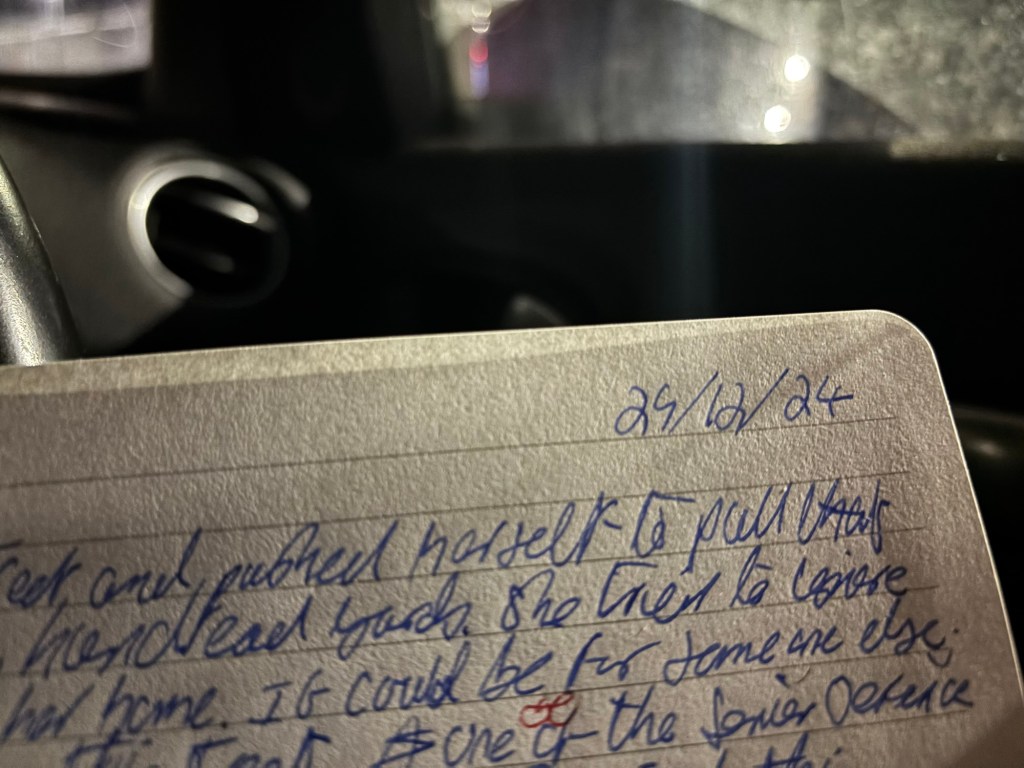 29/12/24
and pushed herself to pull that
hundread yards. She tried to ignore
her home. It could be for someone else.
this one of the Senior Defence